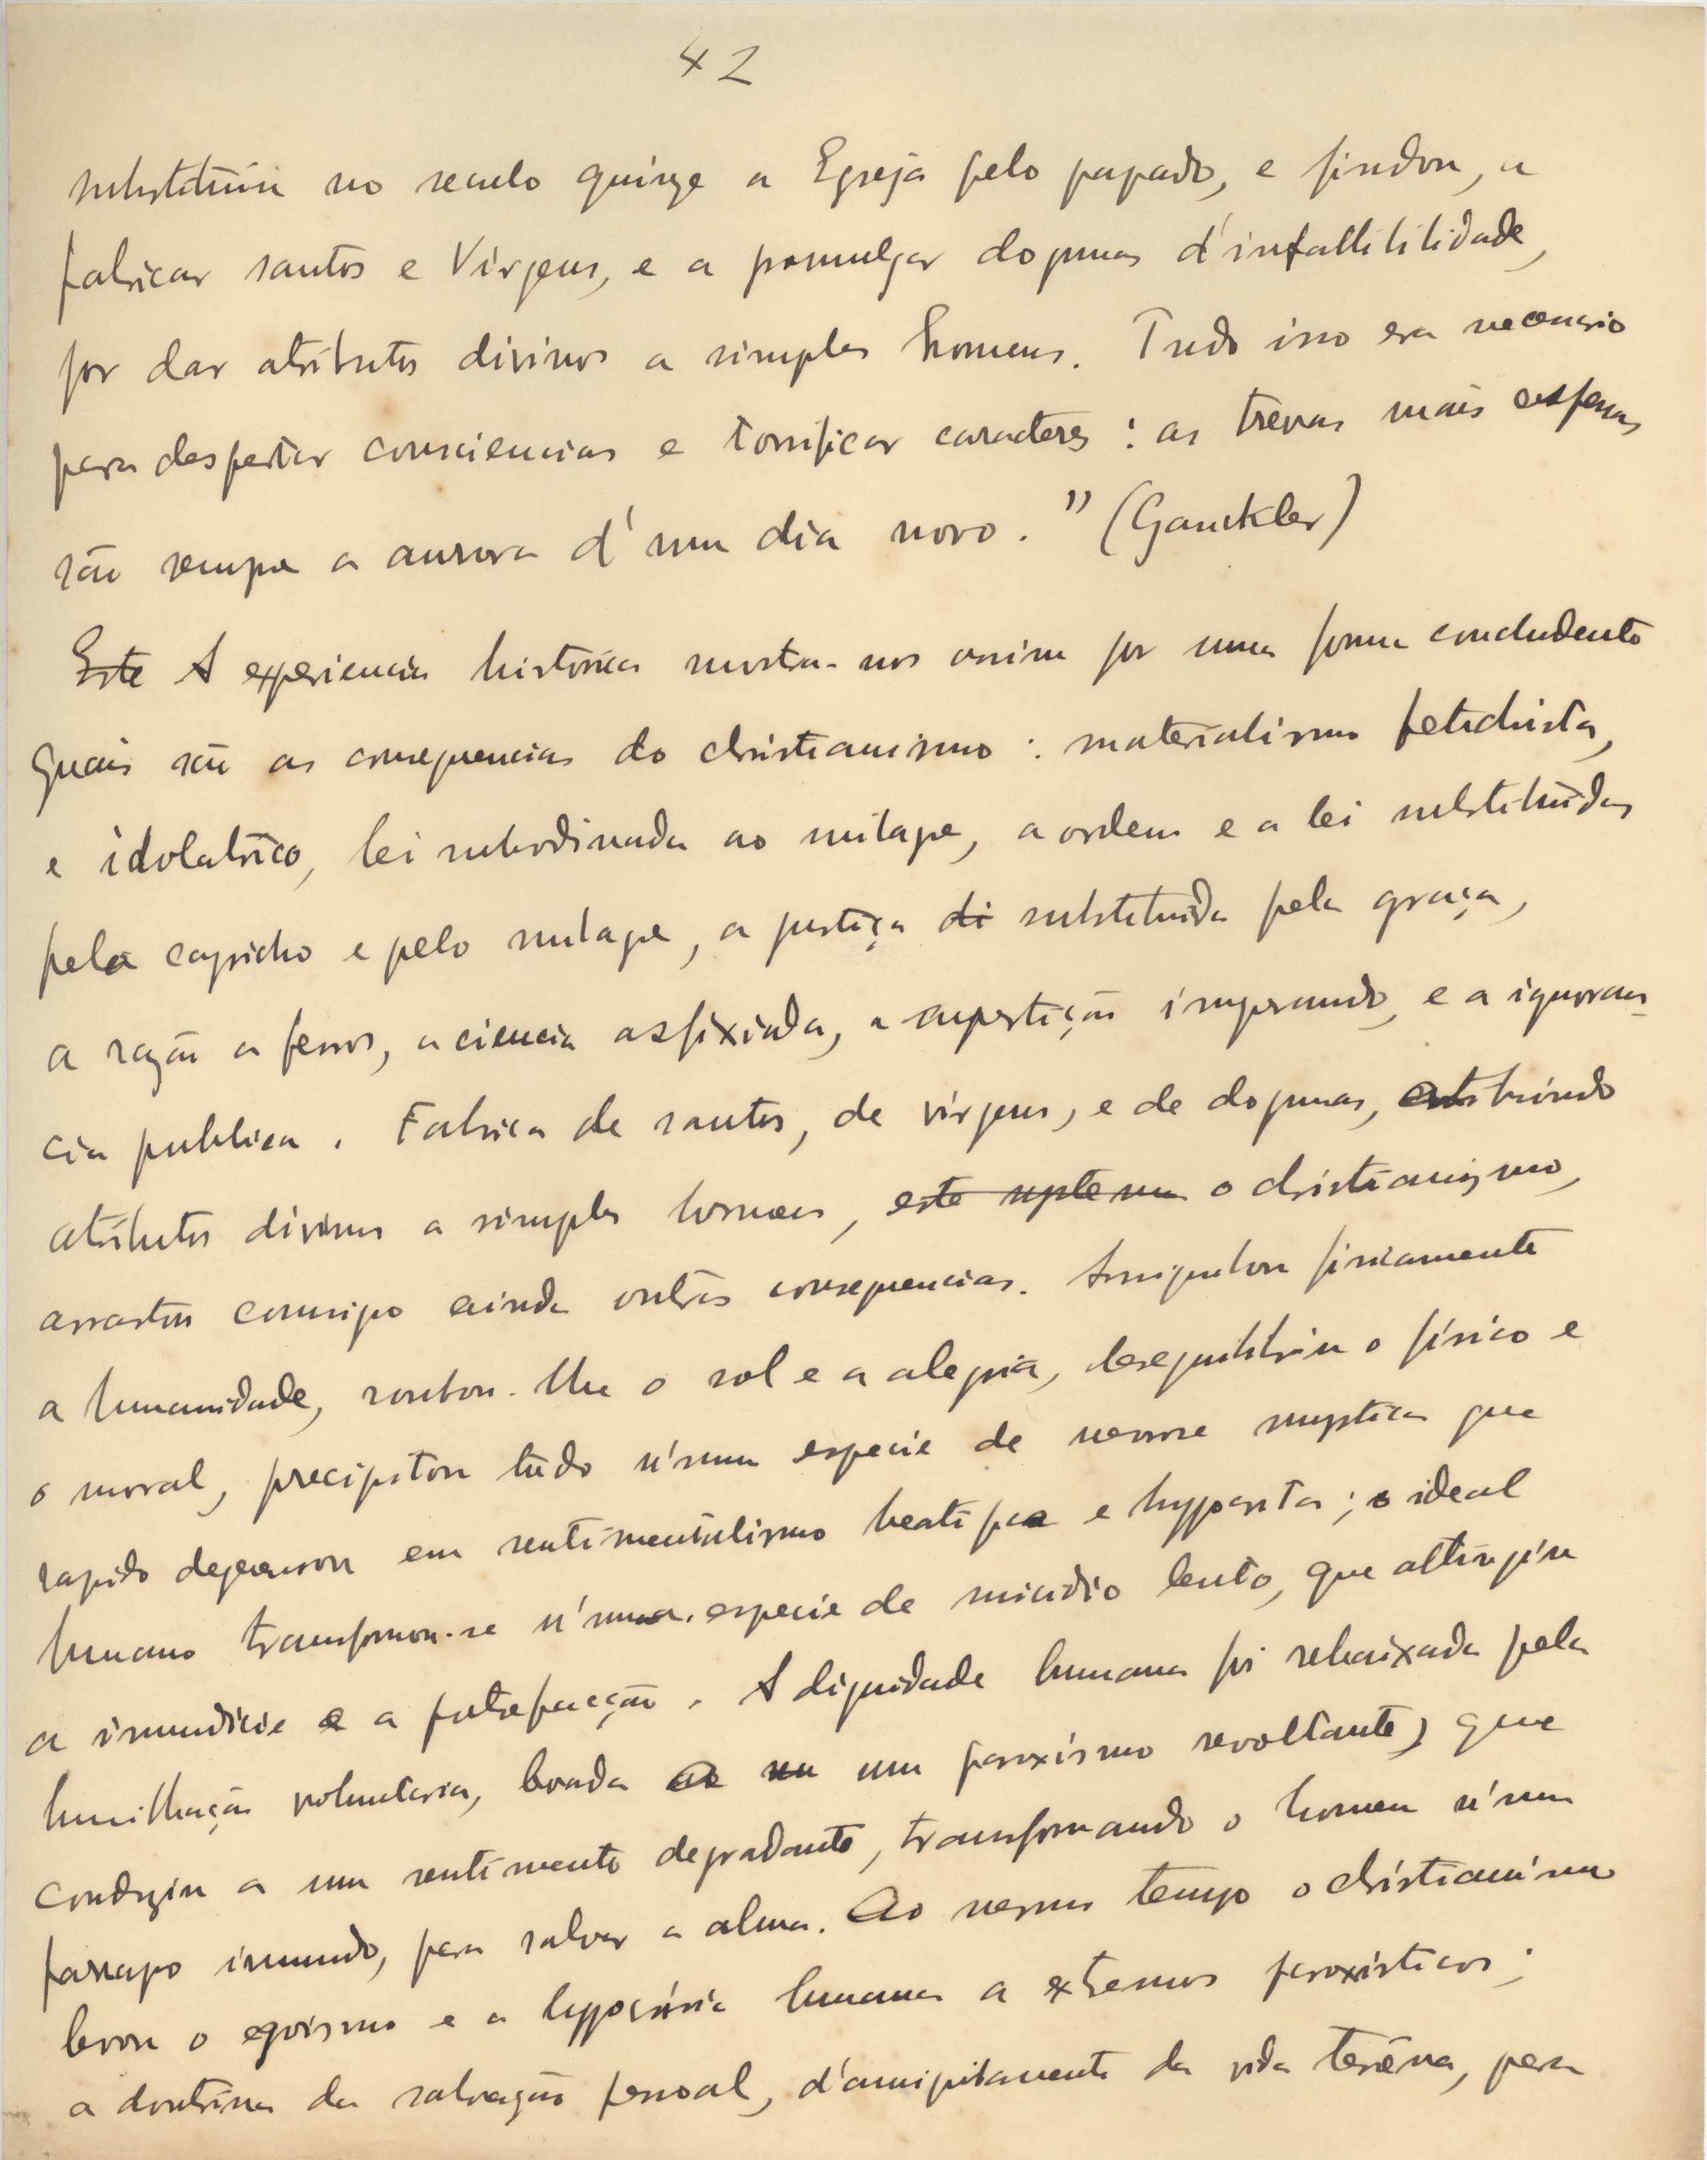 42
substituiu no seculo quinze a Egreja pelo papado, e findou, a
fabricar santos e Virgens, e a promulgar dogmas d'infallibilidade,
por dar atributos divinos a simples homens. Tudo isso era necessario
para despertar consciencias e tonificar caracteres : as trevas mais espessas
são sempre a aurora d'um dia novo." (Ganckler)
Este A experiencia historica mostra-nos assim por uma forma concludente
quais são as consequencias do christianismo : materialismo fetichista,
e idolatrico, lei subordinada ao milagre, a ordem e a lei substituidas
pelo capricho e pelo milagre, a justiça di substituida pela graça,
a razão a ferros, a ciencia asfixiada, a superstição imperando, e a ignoran-
cia publica. Fabrica de santos, de virgens, e de dogmas, atribuindo
atributos divinos a simples homens, este systema o christianismo,
arrastou comsigo ainda outras consequencias. Aniquilou fisicamente
a humanidade, roubou-lhe o sol e a alegria, desequilibriu o físico e
o moral, precipitou tudo n'uma especie de nevrose mystica que
rapido degenerou em sentimentalismo beatifico e hypocrita; o ideal
humano transformou-se n'uma especie de suicidio lento, que attingiu
a imundicie e a putrefacção. A dignidade humana foi rebaixada pela
humilhação voluntaria, levada a um paroxismo revoltante, que
conduziu a um sentimento degradante, transformando o homem n'um
farrapo imundo, para salvar a alma. Ao mesmo tempo o christianismo
levou o egoismo e a hypocrisia humana a extremos paroxisticos;
a doutrina da salvação pessoal, d'aniquilamento da vida terrena, para